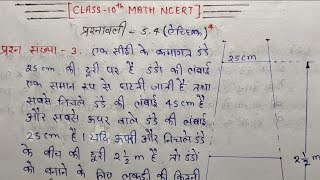 [CLASS-10th MATH NCERT]
प्रश्नावली - 5.4 (ऐच्छिक)*
प्रश्न संख्या - 3. एक सीढ़ी के क्रमागत डंडे
25 cm की दूरी पर हैं डंडों की लंबाई
एक समान रुप से घटती जाती हैं तथा
सबसे निचले डंडे की लंबाई 45 cm है
और सबसे ऊपर वाले डंडे की लंबाई
25 cm हैं। यदि ऊपरी और निचले डंडे
के बीच की दूरी 2½ m है, तो डंडों
को बनाने के लिए लकड़ी की कितनी
25cm
2½ m